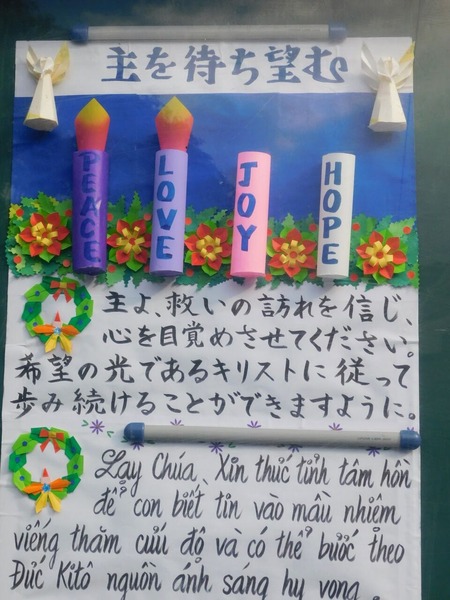 主を待ち望む
PEACE
LOVE
JOY
HOPE
主よ、救いの訪れを信じ、
心を目覚めさせてください。
希望の光であるキリストに従って
歩み続けることができますように。
Lạy Chúa, Xin thức tỉnh tâm hồn
để con biết tin vào mầu nhiệm
viếng thăm cứu độ và có thể bước theo
Đức Kitô nguồn ánh sáng hy vọng.